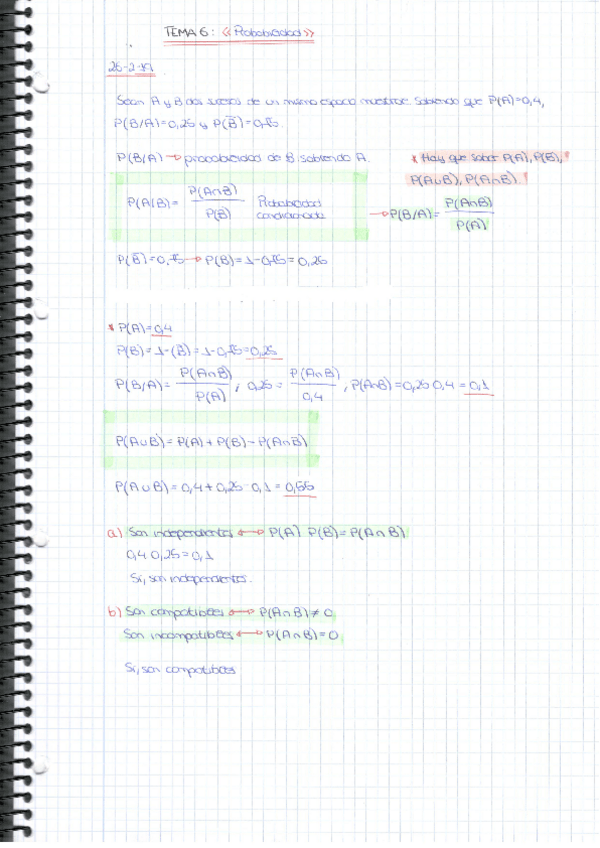 TEMA 6: «Probabilidad»
25-2-19
Sean A y B dos sucesos de un mismo espacio muestral. Sabiendo que P(A)=0,4,
P(B/A)=0,25 y P(B̅)=0,75.
P(B/A) → probabilidad de B sabiendo A.
* Hay que saber P(A), P(B),
P(A∪B), P(A∩B)
P(A/B)= P(A∩B) / P(B) Probabilidad condicionada
→ P(B/A)= P(A∩B) / P(A)
P(B̅)=0,75 → P(B)=1-0,75=0,25
* P(A)=0,4
P(B)=1-(B̅)=1-0,75=0,25
P(B/A)= P(A∩B) / P(A) ; 0,25= P(A∩B) / 0,4 ; P(A∩B)=0,25·0,4=0,1
P(A∪B)=P(A)+P(B)-P(A∩B)
P(A∪B)=0,4+0,25-0,1=0,55
a) Son independientes ↔ P(A)·P(B)=P(A∩B)
0,4·0,25=0,1
Sí, son independientes.
b) Son compatibles ↔ P(A∩B)≠0
Son incompatibles ↔ P(A∩B)=0
Sí, son compatibles